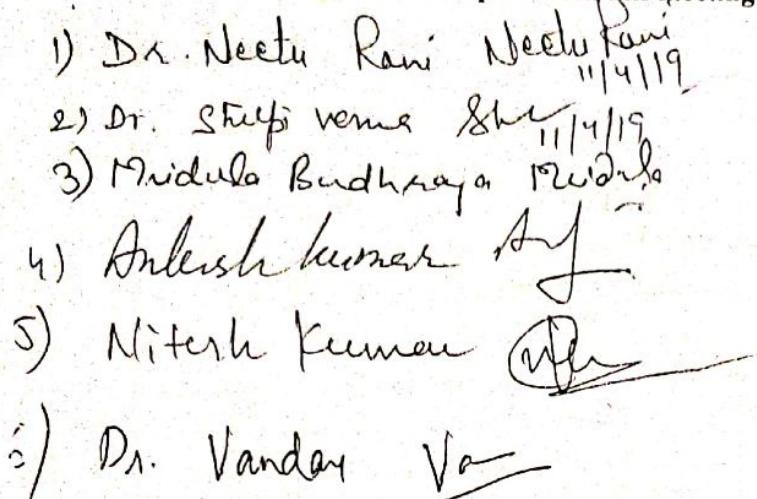 1) Dr. Neetu Rani Neetu Rani
11/4/19
2) Dr. Shilpi Verma
11/4/19
3) Mridula Budhraja Mridula
4) Ankush kumar
5) Nitesh Kumar
Dr. Vanday